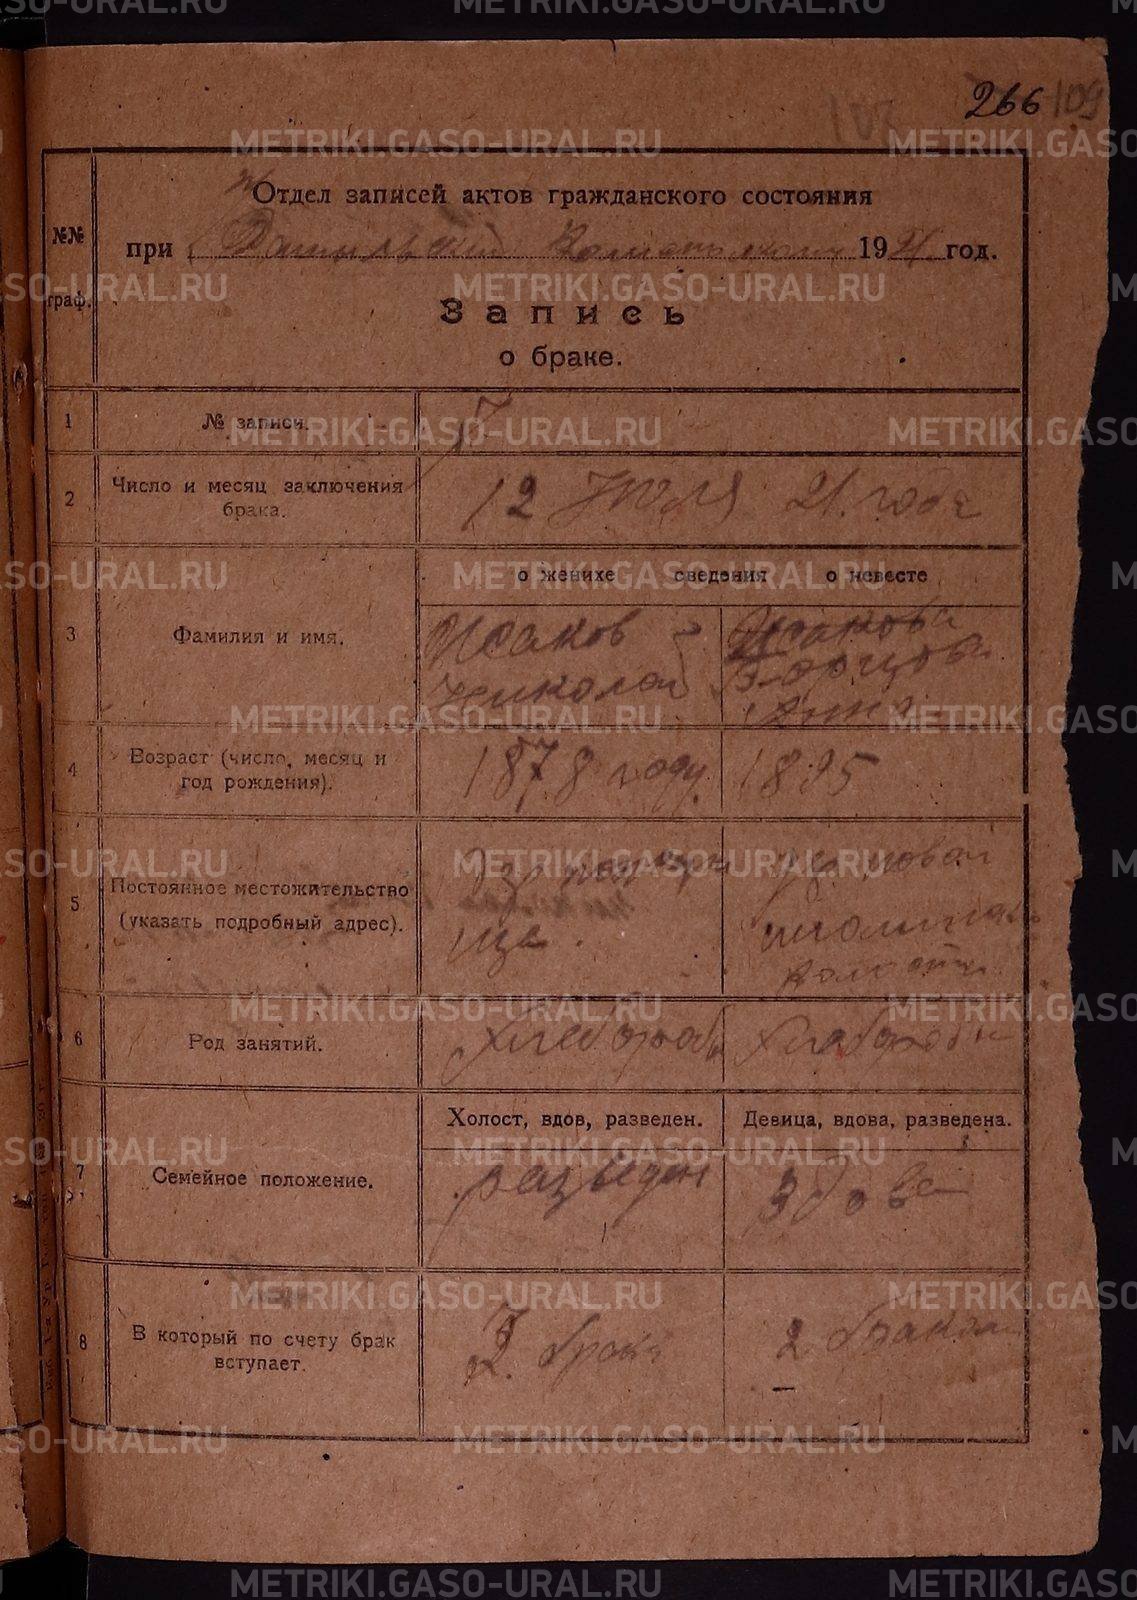 266
Отдел записей актов гражданского состояния
№№ граф.
при 1921 год.
Запись
о браке.
1 № записи. 7
2 Число и месяц заключения брака. 12 Июля 21. года
о женихе сведения о невесте
3 Фамилия и имя.
Исаков
Николай
Исакова
Анна
4 Возраст (число, месяц и год рождения). 1878 году 1895
5 Постоянное местожительство (указать подробный адрес).
волости
6 Род занятий. Хлебороб
Холост, вдов, разведен. Девица, вдова, разведена.
7 Семейное положение. разведен Здова
8 В который по счету брак вступает. 2. брак 2 браком
METRIKI.GASO-URAL.RU